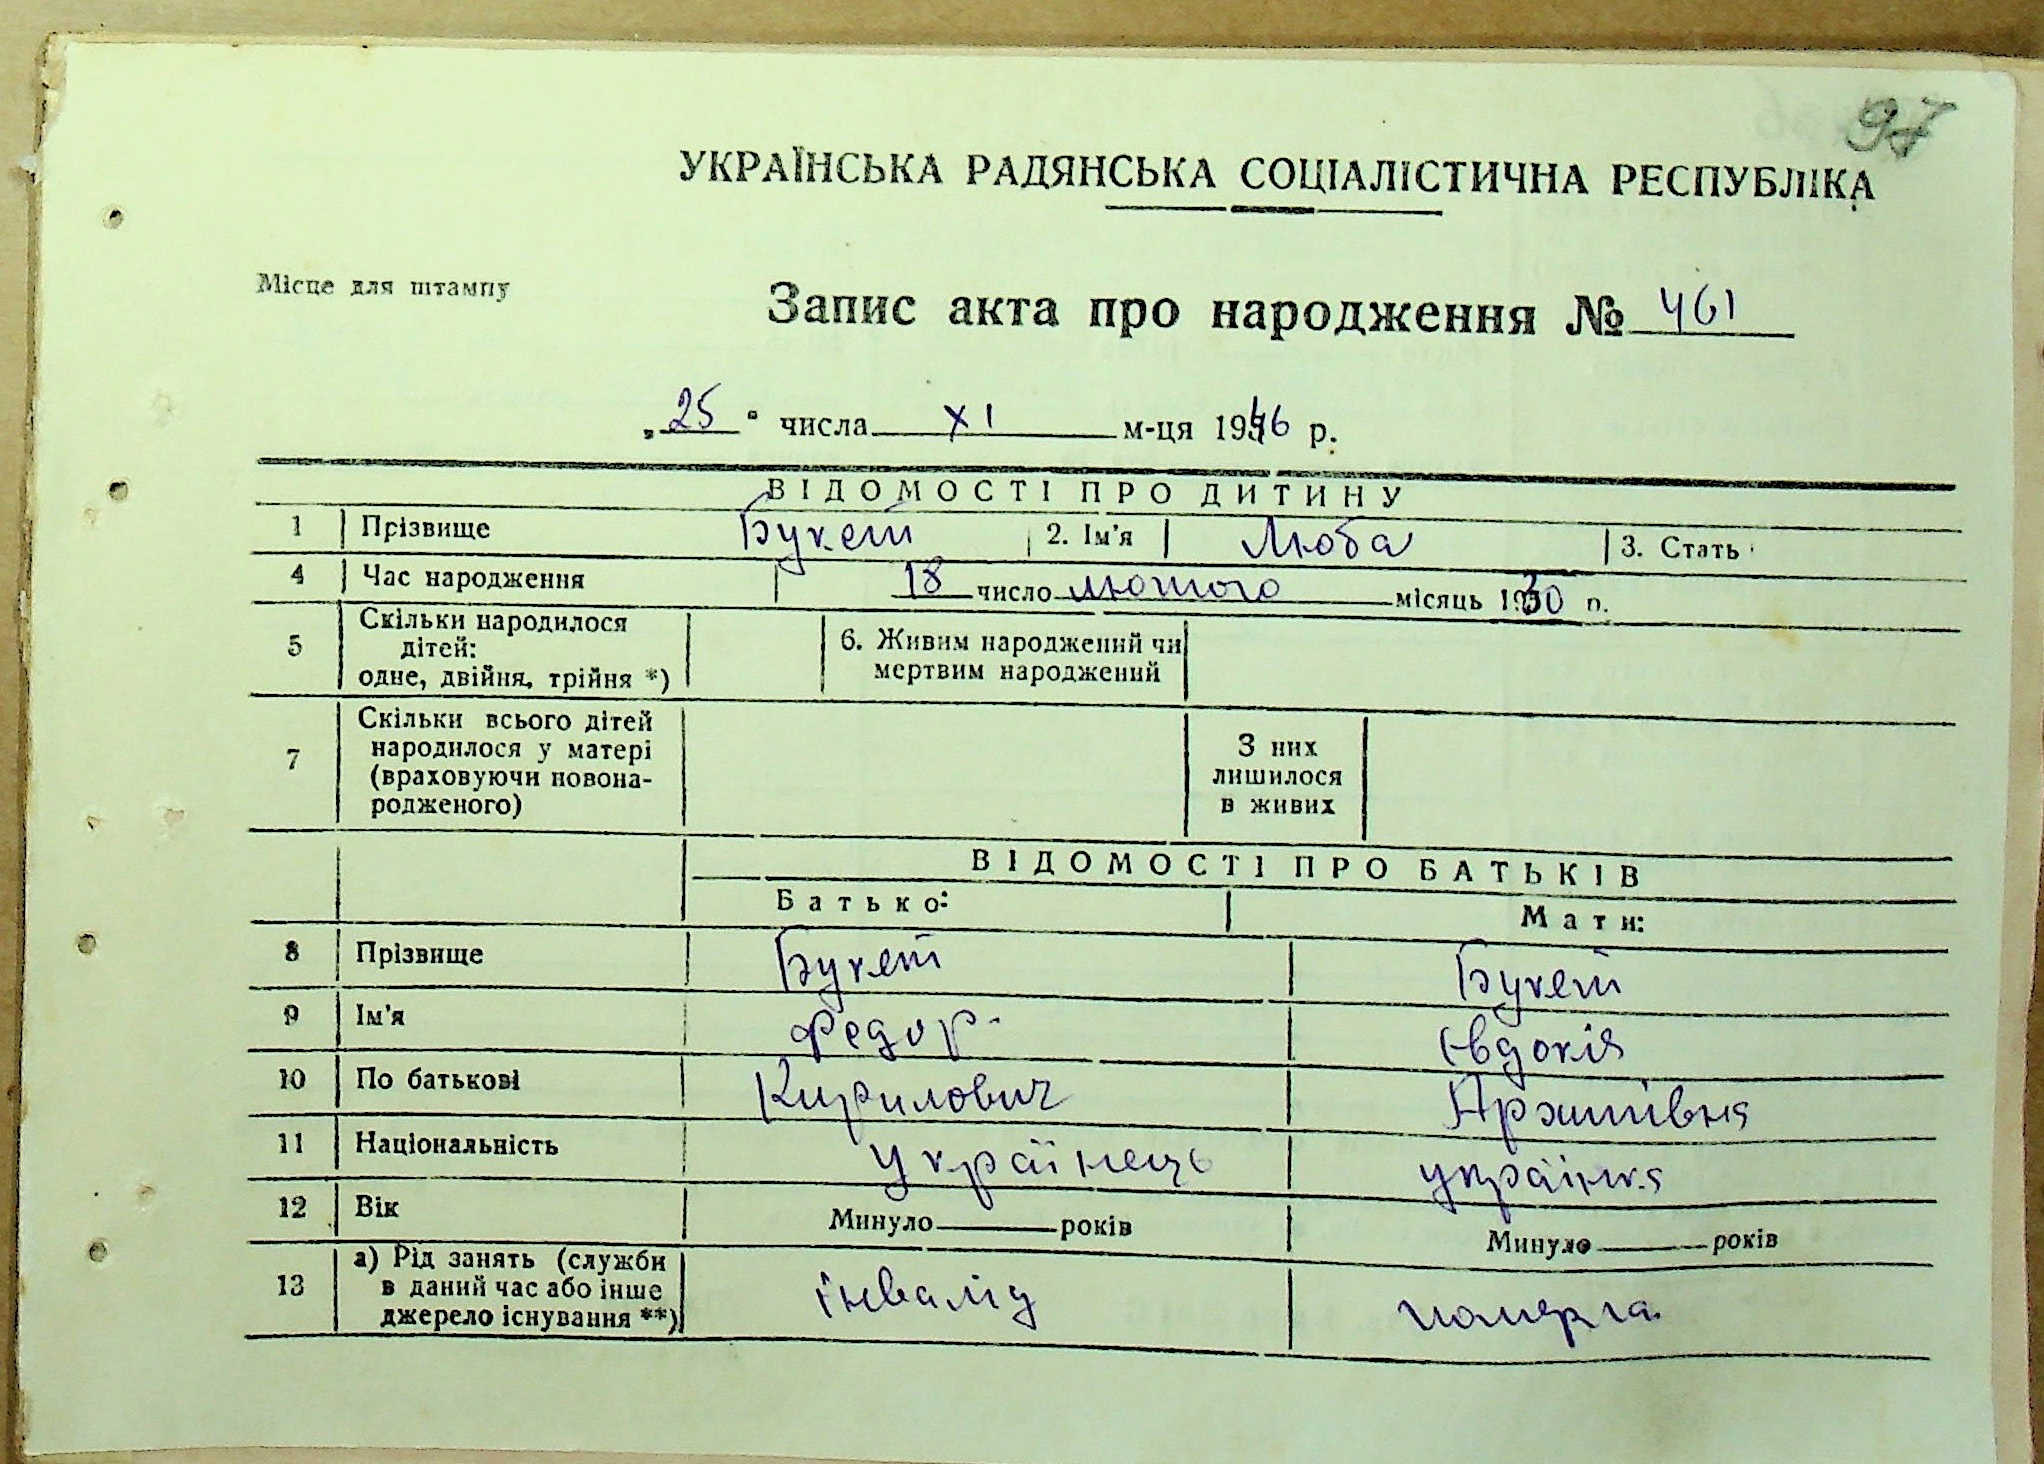 97
УКРАЇНСЬКА РАДЯНСЬКА СОЦІАЛІСТИЧНА РЕСПУБЛІКА
Місце для штампу
Запис акта про народження № 461
„25" числа XI м-ця 1946 р.
ВІДОМОСТІ ПРО ДИТИНУ
1 Прізвище Букет 2. Ім'я Люба 3. Стать
4 Час народження 18 число лютого місяць 1930 р.
5 Скільки народилося дітей: одне, двійня, трійня *) 6. Живим народжений чи мертвим народжений
7 Скільки всього дітей народилося у матері (враховуючи новонародженого) З них лишилося в живих
ВІДОМОСТІ ПРО БАТЬКІВ
Батько: Мати:
8 Прізвище Букет Букет
9 Ім'я Федор Євдокія
10 По батькові Кирилович
11 Національність Українець українка
12 Вік Минуло років Минуло років
13 а) Рід занять (служби в даний час або інше джерело існування **) інвалід померла